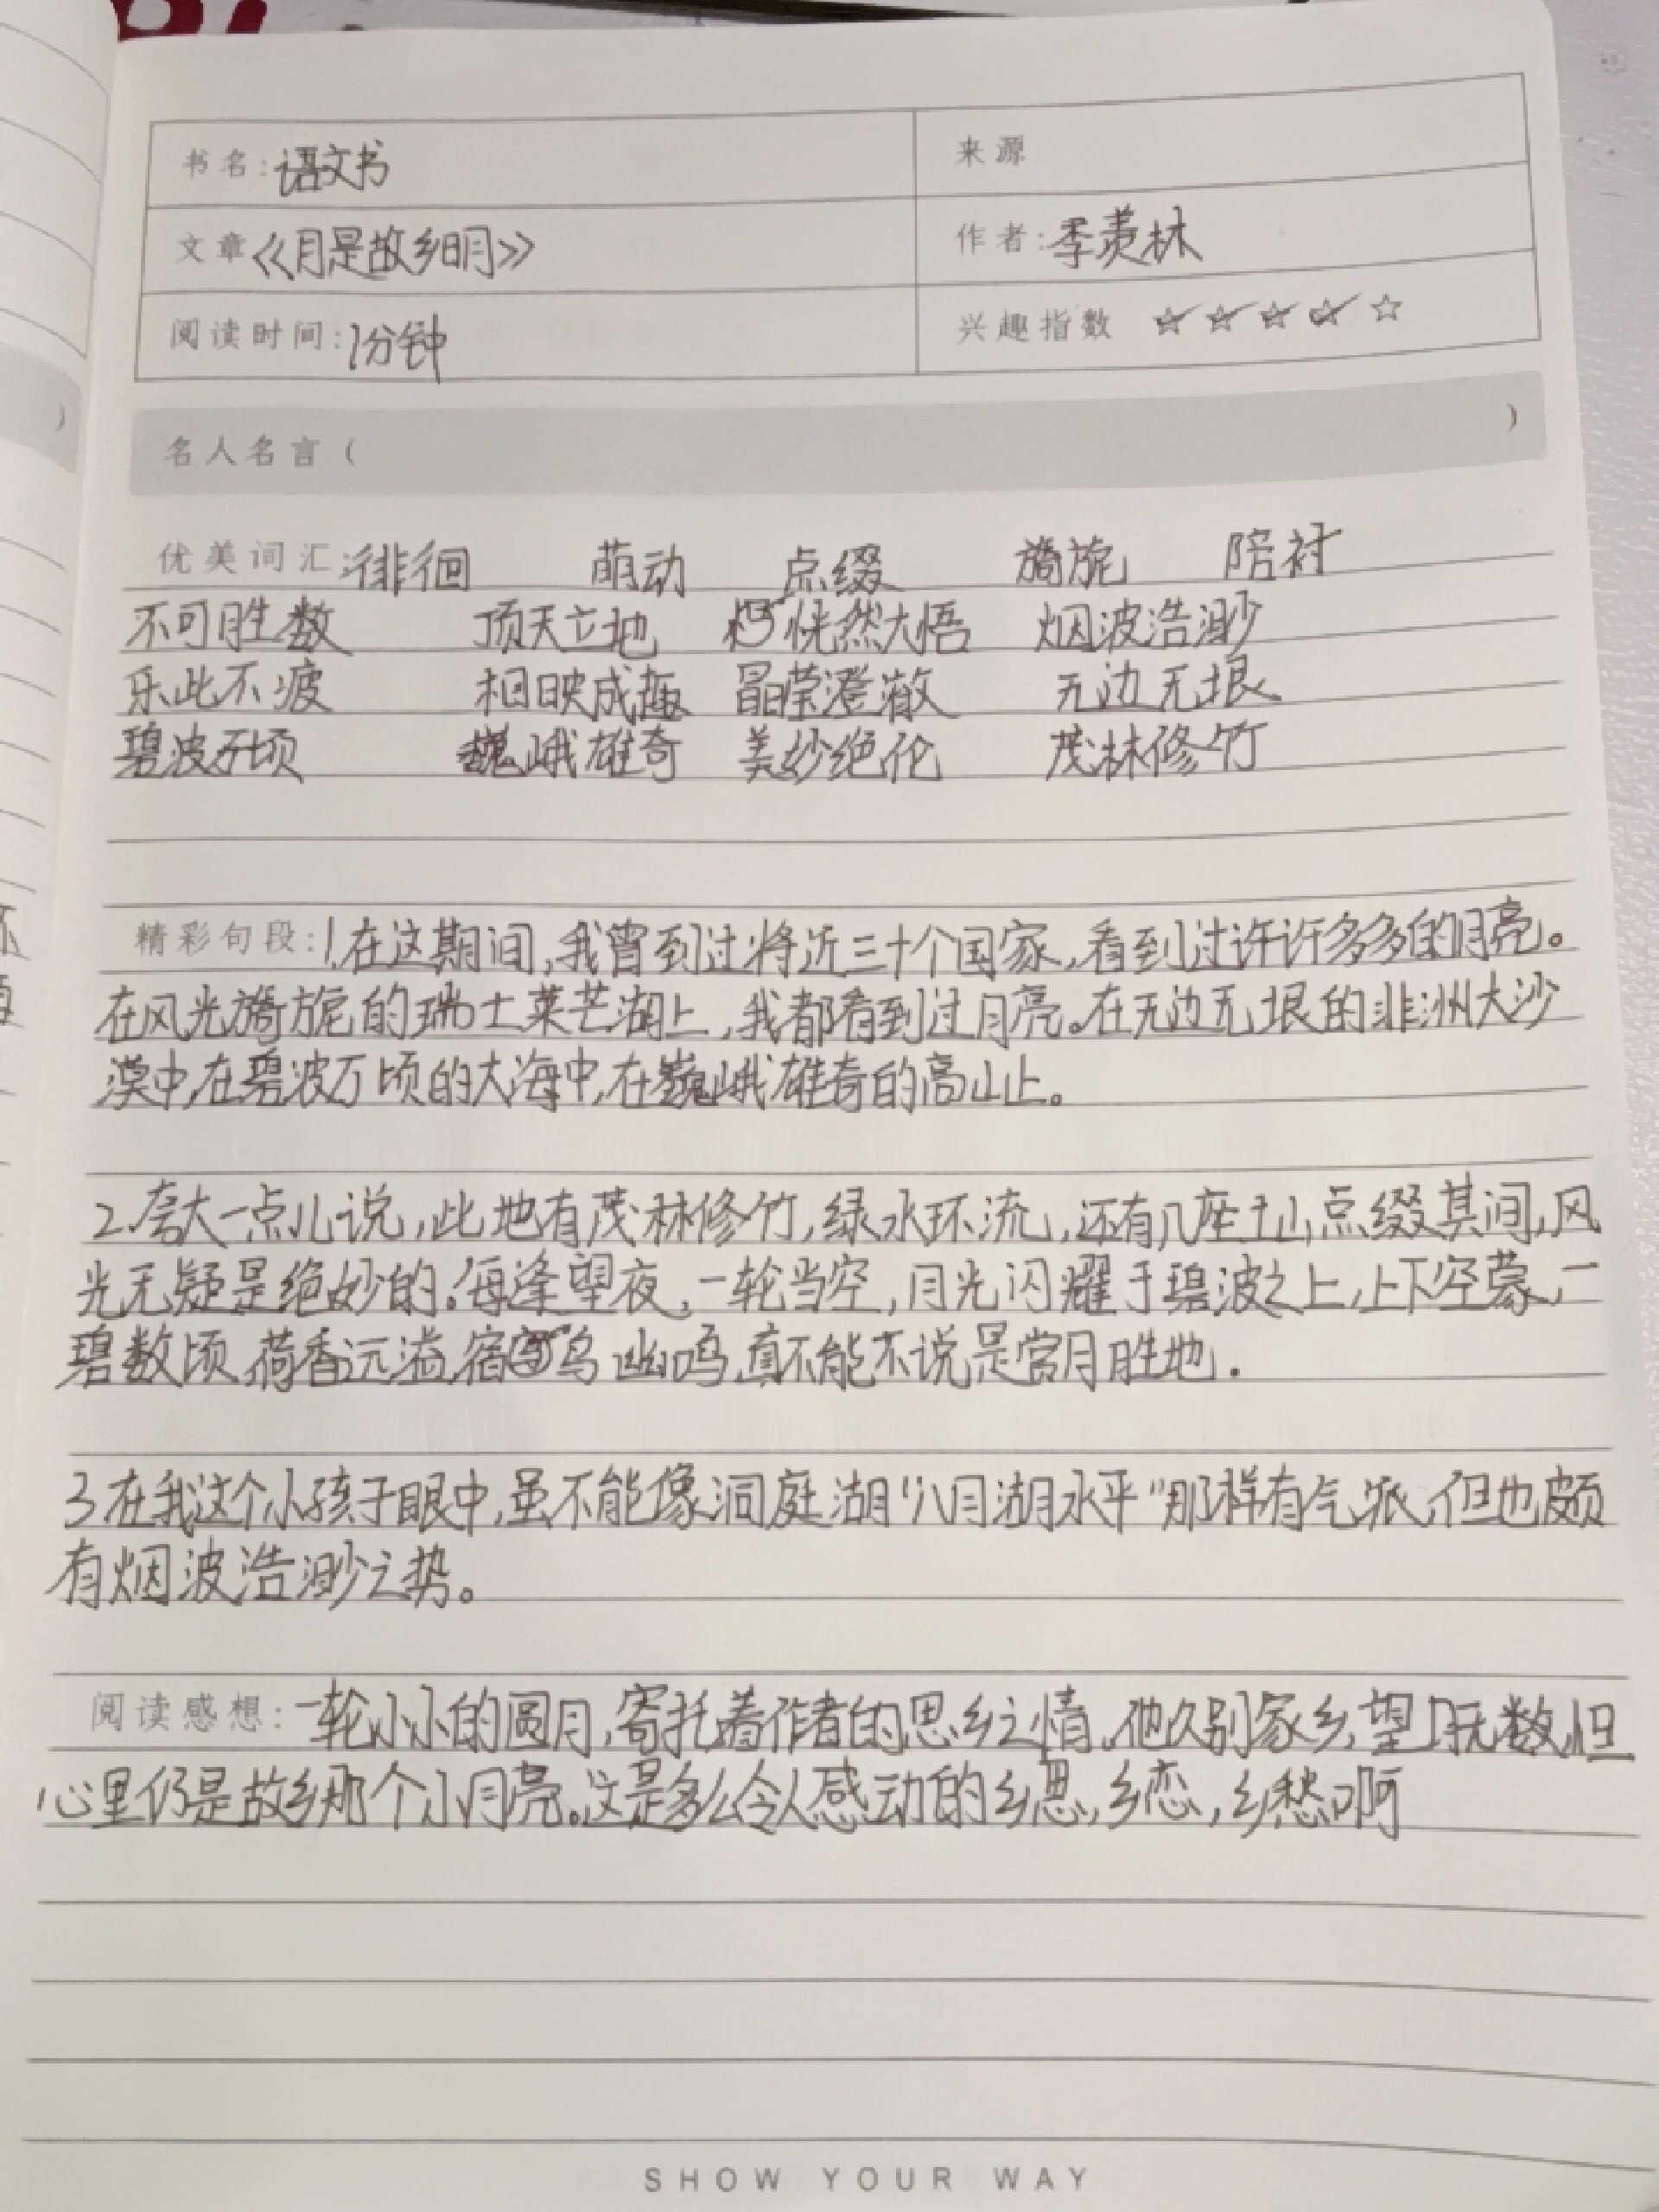 书名：语文书
来源
文章《月是故乡明》
作者：季羡林
阅读时间：1分钟
兴趣指数 ☆☆☆☆☆
名人名言（ ）
优美词汇：徘徊 萌动 点缀 旖旎 陪衬
不可胜数 顶天立地 恍然大悟 烟波浩渺
乐此不疲 相映成趣 晶莹澄澈 无边无垠
碧波万顷 巍峨雄奇 美妙绝伦 茂林修竹
精彩句段：1.在这期间，我曾到过将近三十个国家，看到过许许多多的月亮。
在风光旖旎的瑞士莱芒湖上，我都看到过月亮。在无边无垠的非洲大沙
漠中，在碧波万顷的大海中，在巍峨雄奇的高山上。
2.夸大一点儿说，此地有茂林修竹，绿水环流，还有几座土山点缀其间，风
光无疑是绝妙的。每逢望夜，一轮当空，月光闪耀于碧波之上，上下空蒙，一
碧数顷，荷香远溢，宿鸟幽鸣，真不能不说是赏月胜地．
3.在我这个小孩子眼中，虽不能像洞庭湖“八月湖水平”那样有气派，但也颇
有烟波浩渺之势。
阅读感想：一轮小小的圆月，寄托着作者的思乡之情。他久别家乡，望月无数，但
心里仍是故乡那个小月亮。这是多么令人感动的乡思，乡恋，乡愁啊
SHOW YOUR WAY